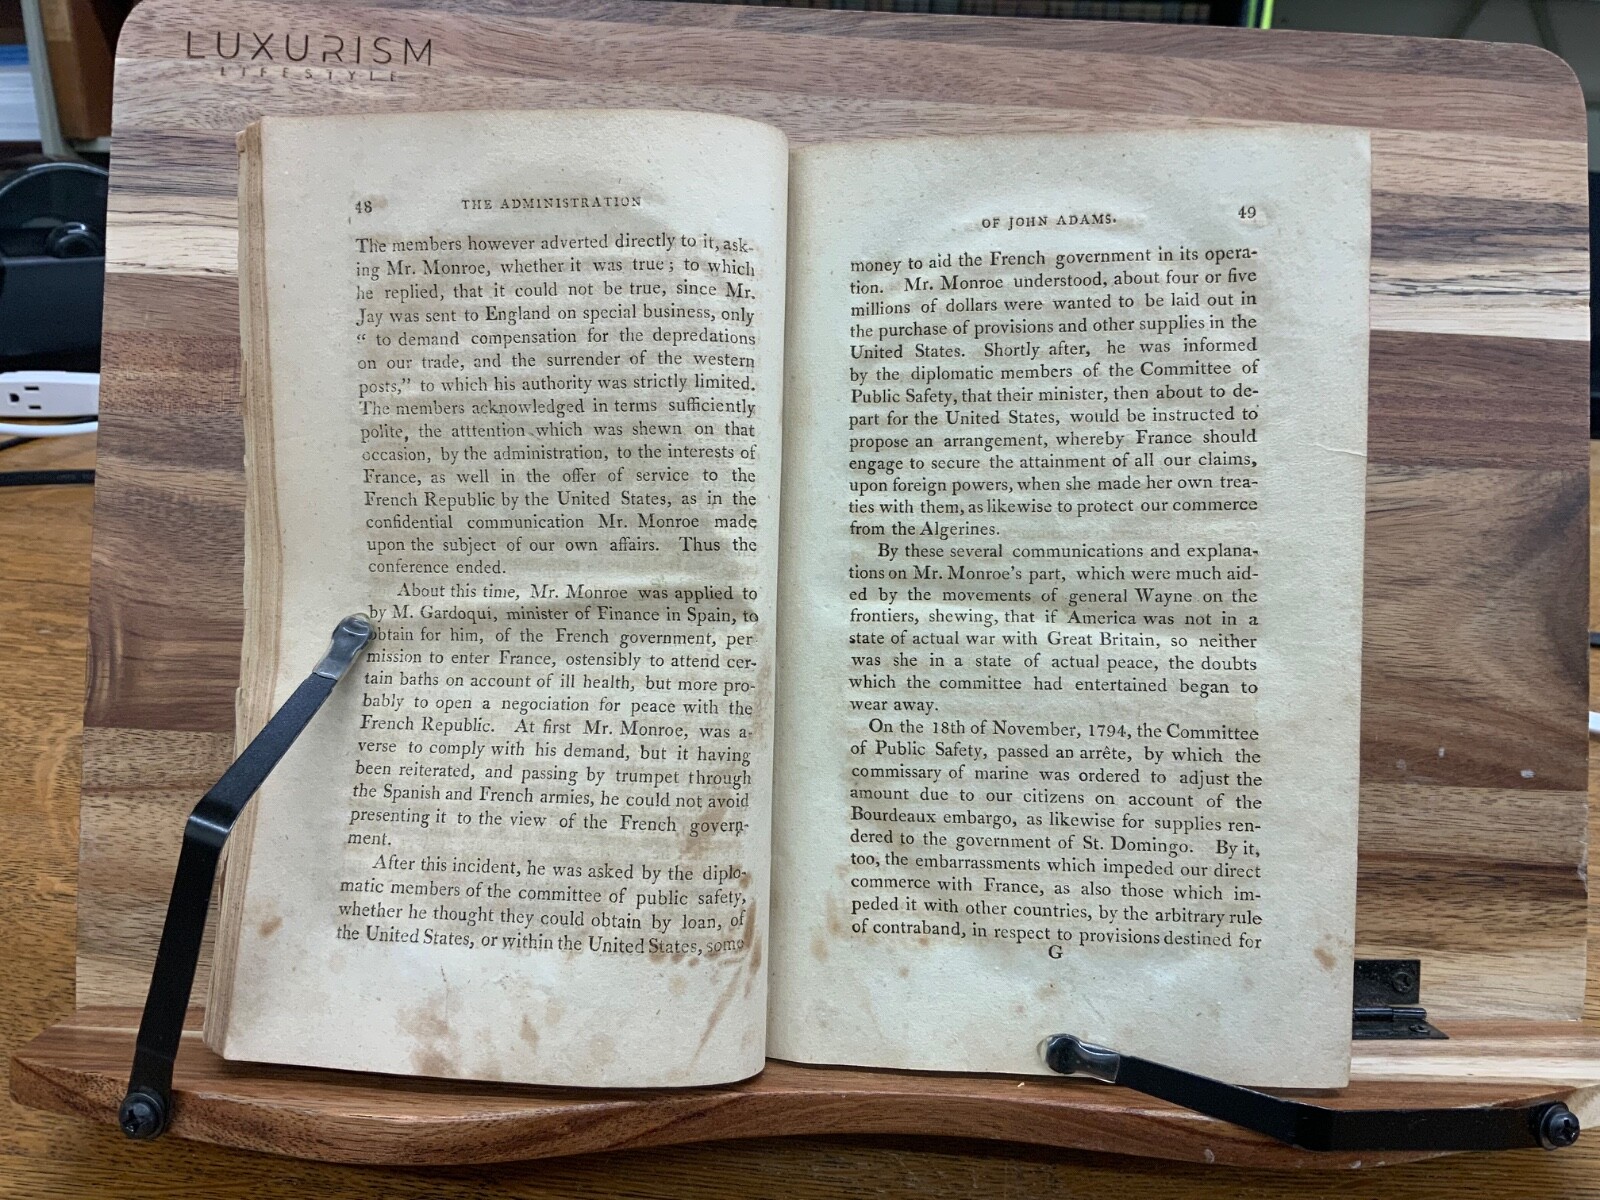 LUXURISM
LIFESTYLE
48 THE ADMINISTRATION
The members however adverted directly to it, ask-
ing Mr. Monroe, whether it was true; to which
he replied, that it could not be true, since Mr.
Jay was sent to England on special business, only
“ to demand compensation for the depredations
on our trade, and the surrender of the western
posts,” to which his authority was strictly limited.
The members acknowledged in terms sufficiently
polite, the atttention which was shewn on that
occasion, by the administration, to the interests of
France, as well in the offer of service to the
French Republic by the United States, as in the
confidential communication Mr. Monroe made
upon the subject of our own affairs. Thus the
conference ended.
About this time, Mr. Monroe was applied to
by M. Gardoqui, minister of Finance in Spain, to
obtain for him, of the French government, per
mission to enter France, ostensibly to attend cer-
tain baths on account of ill health, but more pro-
bably to open a negociation for peace with the
French Republic. At first Mr. Monroe, was a-
verse to comply with his demand, but it having
been reiterated, and passing by trumpet through
the Spanish and French armies, he could not avoid
presenting it to the view of the French govern-
ment.
After this incident, he was asked by the diplo-
matic members of the committee of public safety,
whether he thought they could obtain by loan, of
the United States, or within the United States, some
OF JOHN ADAMS. 49
money to aid the French government in its opera-
tion. Mr. Monroe understood, about four or five
millions of dollars were wanted to be laid out in
the purchase of provisions and other supplies in the
United States. Shortly after, he was informed
by the diplomatic members of the Committee of
Public Safety, that their minister, then about to de-
part for the United States, would be instructed to
propose an arrangement, whereby France should
engage to secure the attainment of all our claims,
upon foreign powers, when she made her own trea-
ties with them, as likewise to protect our commerce
from the Algerines.
By these several communications and explana-
tions on Mr. Monroe's part, which were much aid-
ed by the movements of general Wayne on the
frontiers, shewing, that if America was not in a
state of actual war with Great Britain, so neither
was she in a state of actual peace, the doubts
which the committee had entertained began to
wear away.
On the 18th of November, 1794, the Committee
of Public Safety, passed an arrête, by which the
commissary of marine was ordered to adjust the
amount due to our citizens on account of the
Bourdeaux embargo, as likewise for supplies ren-
dered to the government of St. Domingo. By it,
too, the embarrassments which impeded our direct
commerce with France, as also those which im-
peded it with other countries, by the arbitrary rule
of contraband, in respect to provisions destined for
G